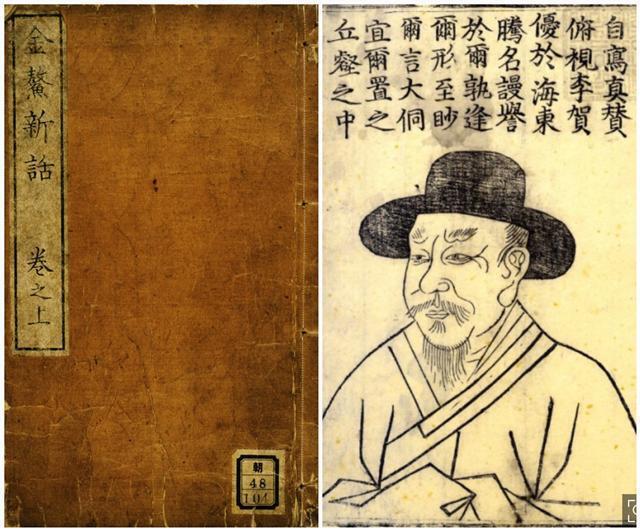 金鰲新話 卷之上
朝
48
104
自寫真贊
俯視李賀
優於海東
騰名謾譽
於爾孰逢
爾形至眇
爾言大侗
宜爾置之
丘壑之中